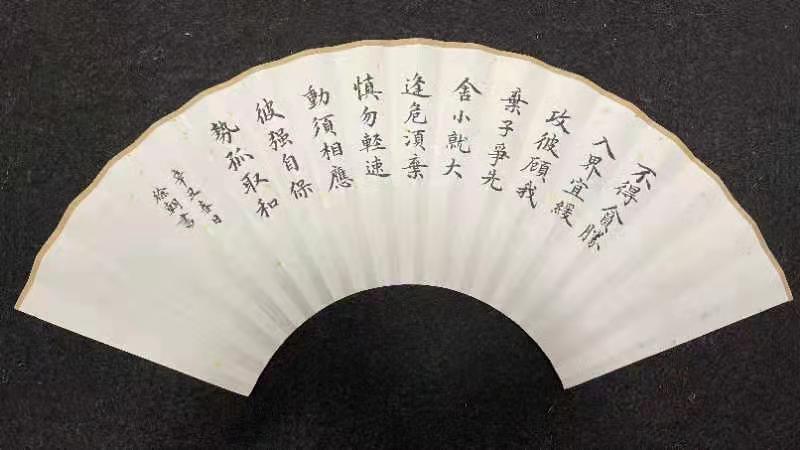 不得貪勝
入界宜緩
攻彼顧我
棄子爭先
舍小就大
逢危須棄
慎勿輕速
動須相應
彼强自保
勢孤取和
辛丑春日
徐朝書